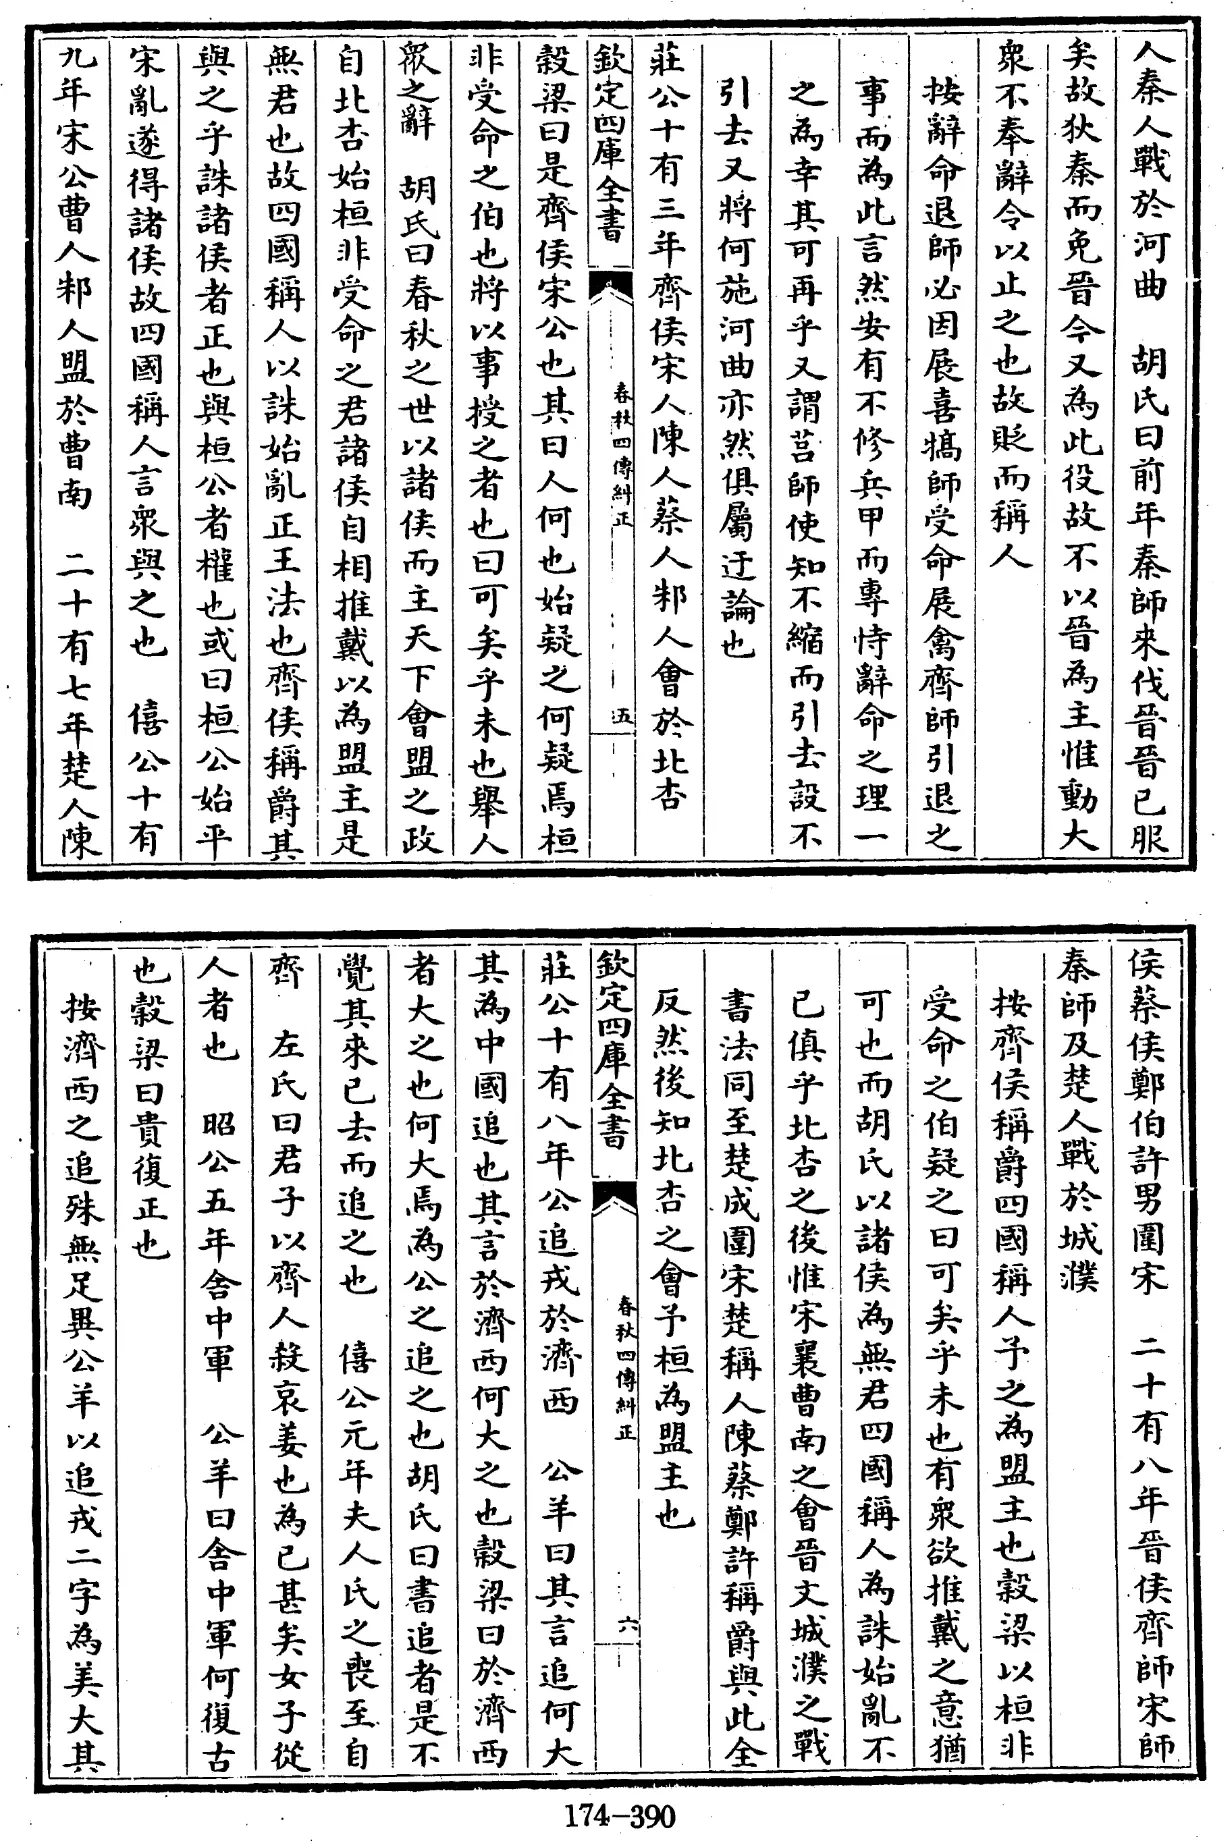 人秦人戰於河曲　胡氏曰前年秦師來伐晉晉已服
矣故狄秦而免晉今又為此役故不以晉為主惟動大
衆不奉辭令以止之也故貶而稱人
按辭命退師必因展喜犒師受命展禽齊師引退之
事而為此言然安有不修兵甲而專恃辭命之理一
之為幸其可再乎又謂莒師使知不縮而引去設不
引去又將何施河曲亦然俱屬迂論也
莊公十有三年齊侯宋人陳人蔡人邾人會於北杏
欽定四庫全書
春秋四傳糾正
五
穀梁曰是齊侯宋公也其曰人何也始疑之何疑焉桓
非受命之伯也將以事授之者也曰可矣乎未也舉人
衆之辭　胡氏曰春秋之世以諸侯而主天下會盟之政
自北杏始桓非受命之君諸侯自相推戴以為盟主是
無君也故四國稱人以誅始亂正王法也齊侯稱爵其
與之乎誅諸侯者正也與桓公者權也或曰桓公始平
宋亂遂得諸侯故四國稱人言衆與之也　僖公十有
九年宋公曹人邾人盟於曹南　二十有七年楚人陳
侯蔡侯鄭伯許男圍宋　二十有八年晉侯齊師宋師
秦師及楚人戰於城濮
按齊侯稱爵四國稱人予之為盟主也穀梁以桓非
受命之伯疑之曰可矣乎未也有衆欲推戴之意猶
可也而胡氏以諸侯為無君四國稱人為誅始亂不
已傎乎北杏之後惟宋襄曹南之會晉文城濮之戰
書法同至楚成圍宋楚稱人陳蔡鄭許稱爵與此全
反然後知北杏之會予桓為盟主也
欽定四庫全書
春秋四傳糾正
六
莊公十有八年公追戎於濟西　公羊曰其言追何大
其為中國追也其言於濟西何大之也穀梁曰於濟西
者大之也何大焉為公之追之也胡氏曰書追者是不
覺其來已去而追之也　僖公元年夫人氏之喪至自
齊　左氏曰君子以齊人殺哀姜也為已甚矣女子從
人者也　昭公五年舍中軍　公羊曰舍中軍何復古
也穀梁曰貴復正也
按濟西之追殊無足異公羊以追戎二字為美大其
174-390